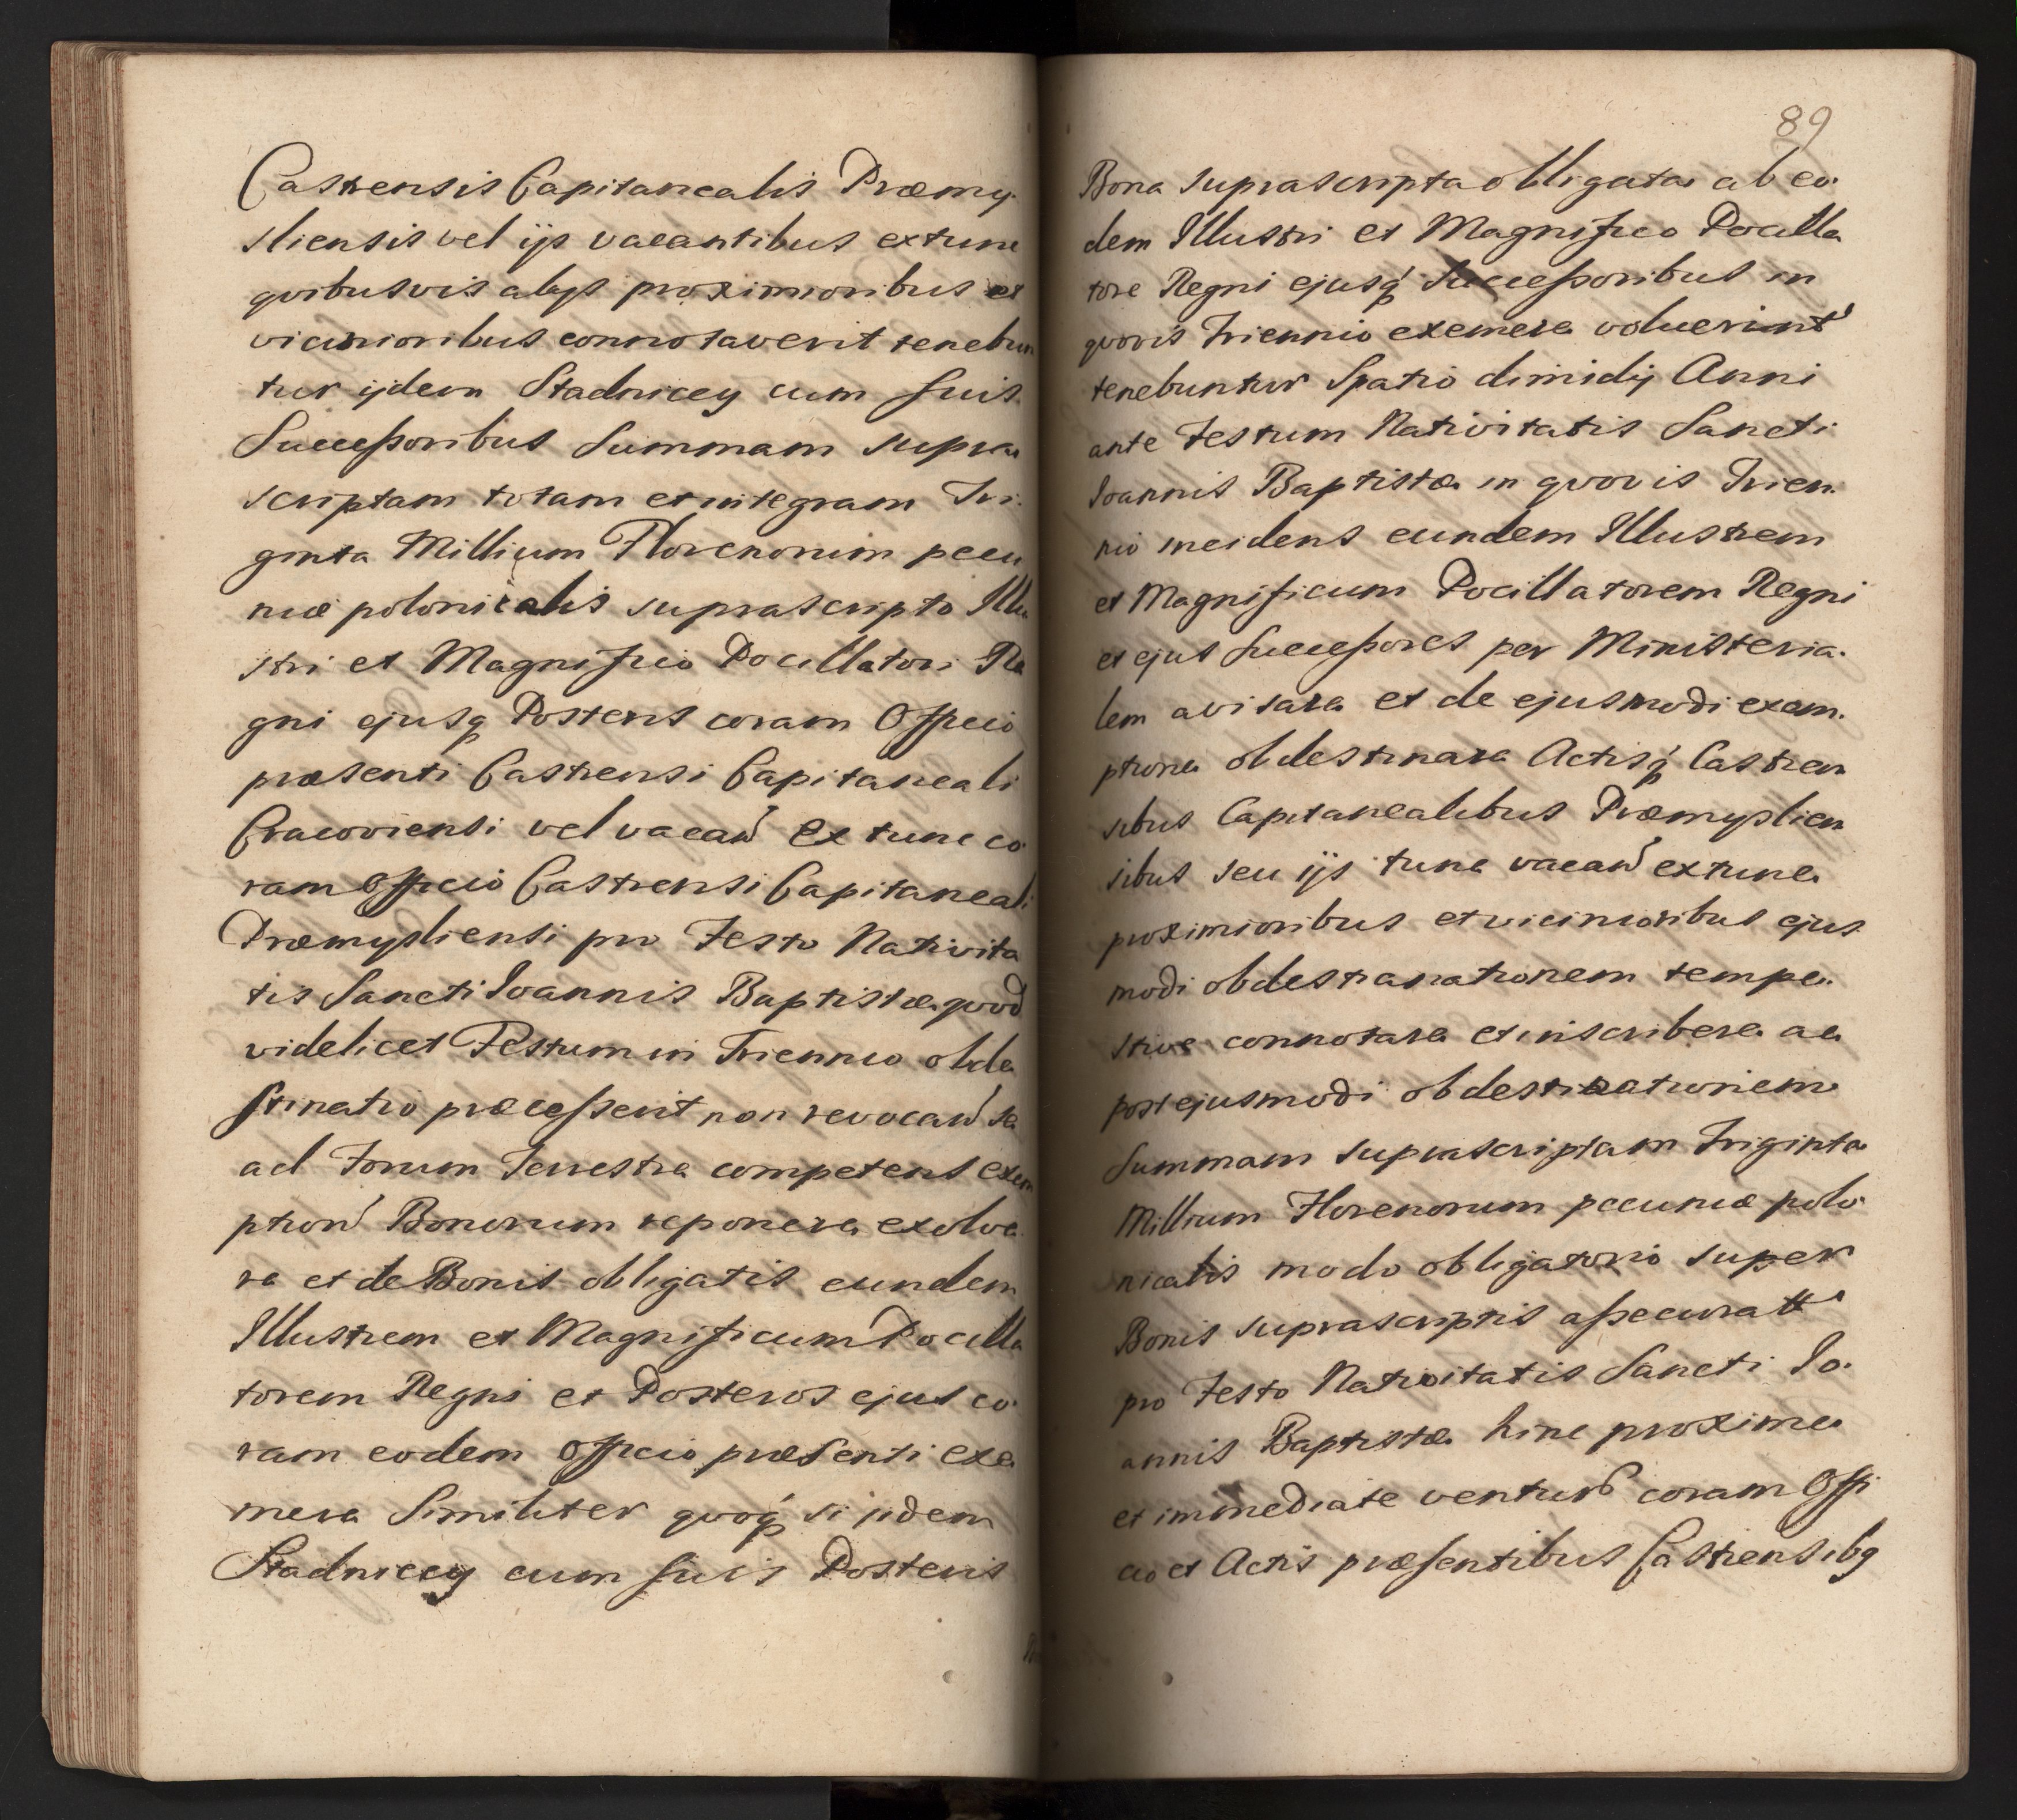 Castrensis Capitanealis Præmy-
sliensis vel ijs vacantibus extunc
qvibusvis alijs proximioribus et
vicinioribus connotaverit tenebun
tur ijdem Stadniccy cum suis
Successoribus Summam supra
scriptam totam et integram Tri-
ginta Millium Florenorum pecu
niæ polonicalis suprascripto Illu
stri et Magnifico Pocillatori Re
gni ejusq Posteris coram Officio
præsenti Castrensi Capitaneali
Cracoviensi vel vacan' ex tunc co-
ram Officio Castrensi Capitaneali
Præmysliensi pro Festo Nativita
tis Sancti Joannis Baptistæ qvod
videlicet Festum in Triennio obde
stinatio præcesserit non revocan' se
ad Forum Terrestre competens exem
ption' Bonorum reponere exolve
re et de Bonis obligatis eundem
Illustrem et Magnificum Pocilla
torem Regni et Posteros ejus co-
ram eodem Officio præsenti exi
mere Similiter qvoq' si ijdem
Stadniccy cum suis Posteris
89
Bona suprascripta obligata ab eo-
dem Illustri et Magnifico Pocilla
tore Regni ejusq' Successoribus in
qvovis Triennio exemere voluerint
tenebuntur Spatio dimidij Anni
ante Festum Nativitatis Sancti
Joannis Baptistæ in qvovis Trien-
nio incidens eundem Illustrem
et Magnificum Pocillatorem Regni
et ejus Successores per Ministeria-
lem avisare et de ejusmodi exem-
ptione obdestinare Actisq' Castren
sibus Capitanealibus Præmyslien
sibus seu ijs tunc vacan' extunc
proximioribus et vicinioribus ejus
modi obdestinationem tempe-
stive connotare et inscribere ac
post ejusmodi obdestinationem
Summam suprascriptam Triginta
Millium Florenorum pecuniæ polo-
nicalis modo obligatorio super
Bonis suprascriptis assecuratt
pro Festo Nativitatis Sancti Jo-
annis Baptistæ hinc proxime
et immediate ventur' coram Offi
cio et Actis præsentibus Castrensibq